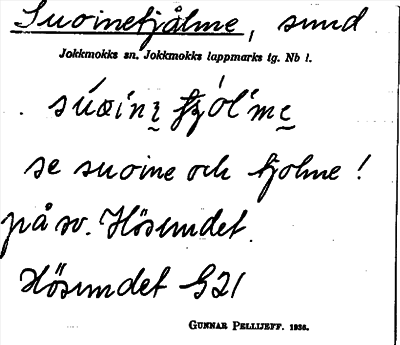 Suoinetjålme, sund
Jokkmokks sn. Jokkmokks lappmarks tg. Nb l.
se suoine och tjolme!
på sv. Hösundet.
Hösundet G21
GUNNAR PELLIJEFF. 1936.